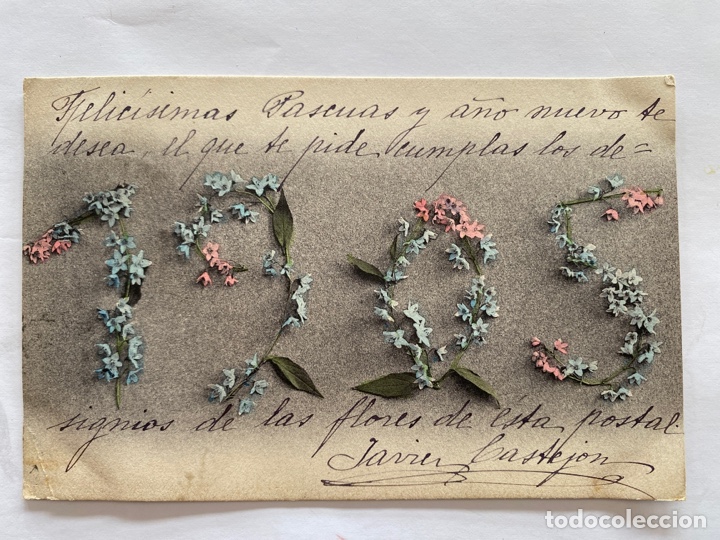 Felicísimas Pascuas y año nuevo te
desea, el que te pide cumplas los de=
1905
signios de las flores de ésta postal.
Javier Castejon
todocoleccion